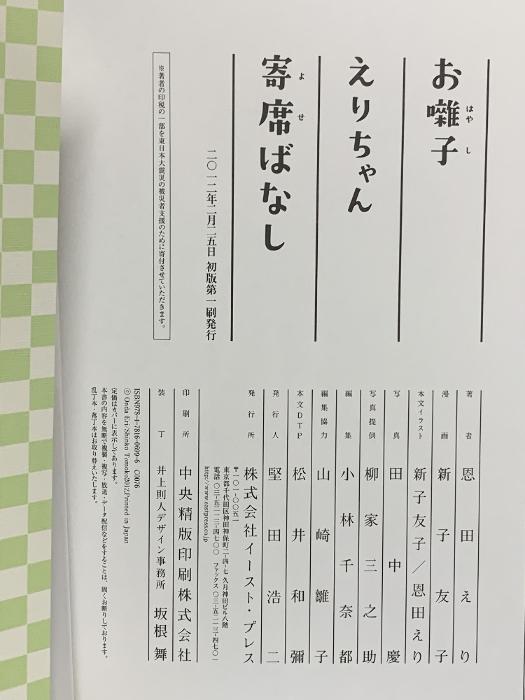 お囃子
はやし
えりちゃん
寄席ばなし
よせ
二〇一二年二月二五日 初版第一刷発行
※著者の印税の一部を東日本大震災の被災者支援のために寄付させていただきます。
著者 恩田えり
漫画 新子友子
本文イラスト 新子友子／恩田えり
写真 田中慶
写真提供 柳家三之助
編集 小林千奈都
編集協力 山崎雛子
本文DTP 松井和彌
発行人 堅田浩二
発行所 株式会社イースト・プレス
〒一〇一-〇〇五一
東京都千代田区神田神保町二-四-七 久月神田ビル八階
電話 〇三-五二一三-四七〇〇 ファックス 〇三-五二一三-四七〇一
http://www.eastpress.co.jp
印刷所 中央精版印刷株式会社
装丁 井上則人デザイン事務所 坂根舞
ISBN978-4-7816-0609-6 C0076
© Onda Eri・Shinko Tomoko2012,Printed in Japan
定価はカバーに表示してあります。
本書の内容を無断で複製・複写・放送・データ配信などをすることは、固くお断りしております。
乱丁本・落丁本はお取り替えいたします。